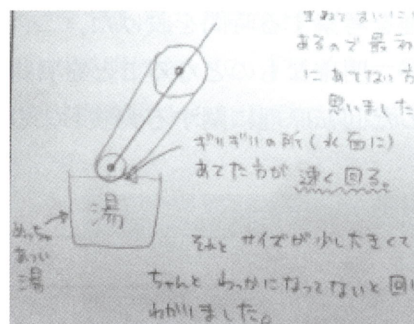 まわてないに
あるので最初
にあてない方
思いました
ギリギリの所(水面に)
あてた方が速く回る。
湯
めっちゃ
あつい
湯
それとサイズが少し大きくて
ちゃんとわっかになってないと回
わかりました。